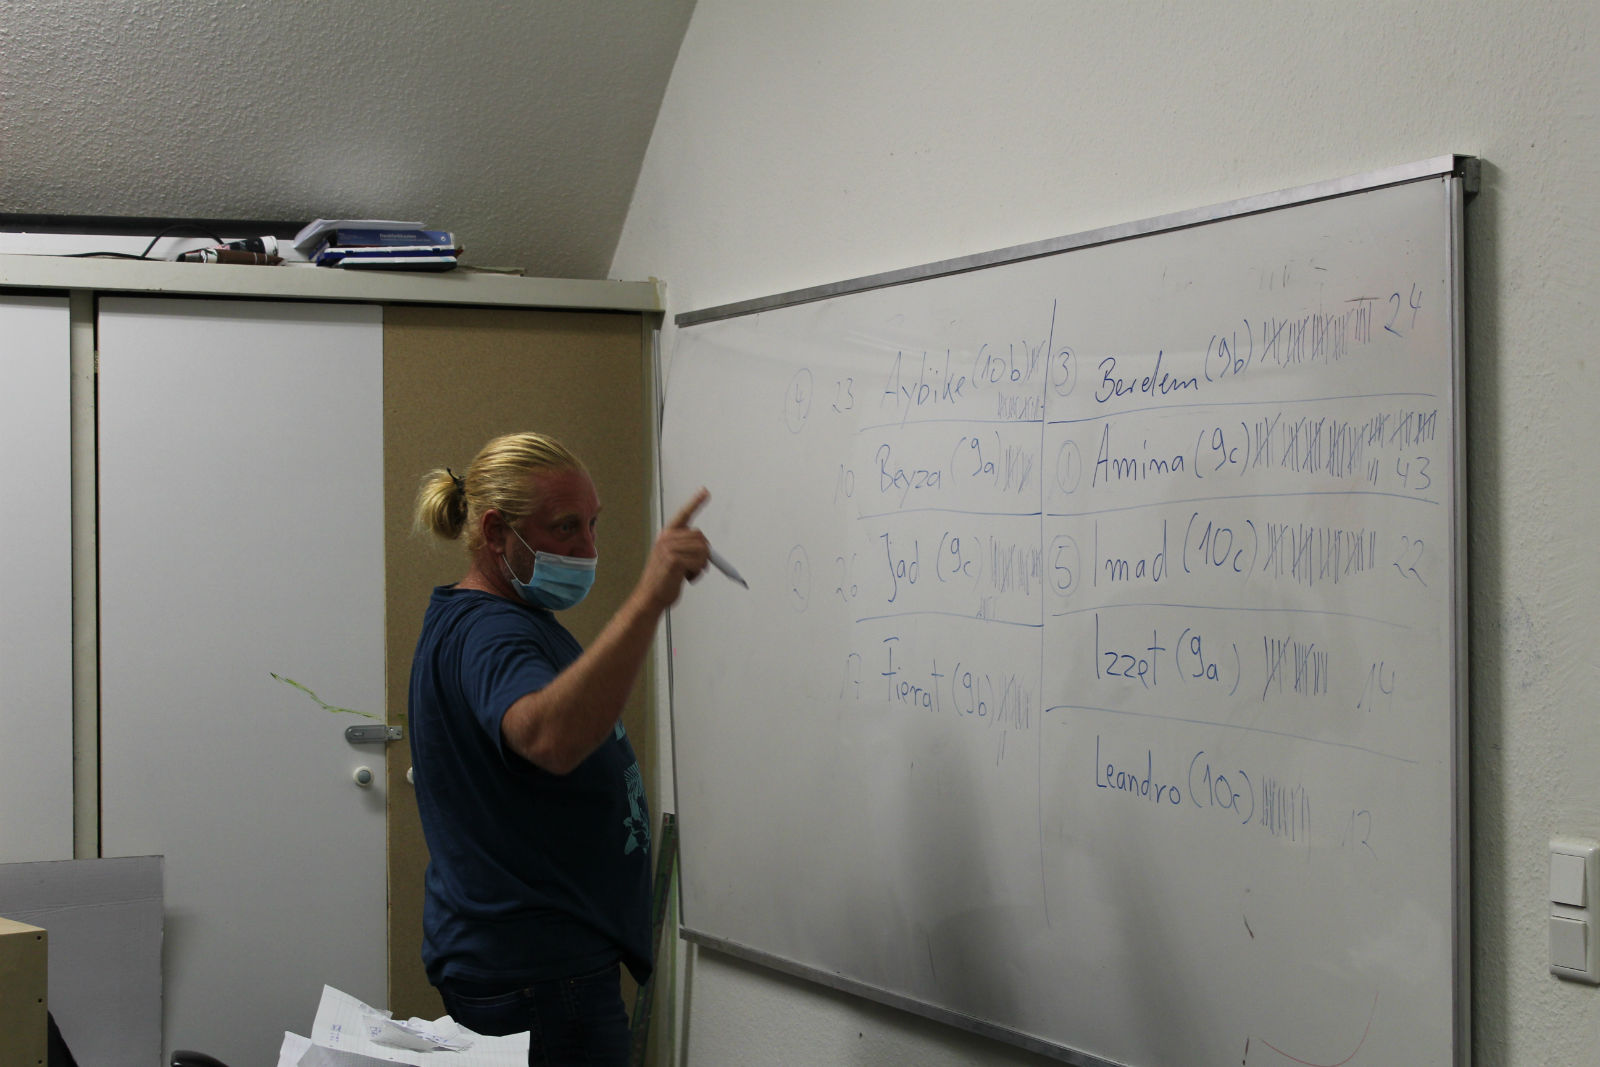 ④ 23 Aybüke (10b)
10 Beyza (9a)
② 26 Jad (9c)
17 Fierat (9b)
③ Berdem (9b) 24
① Amina (9c) 43
⑤ Imad (10c) 22
Izzet (9a) 14
Leandro (10c) 12